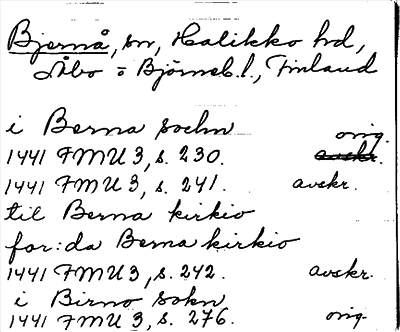 Bjernå, sn, Halikko hd,
Åbo o Björneb. l., Finland
i Berna sochn orig.
1441 FMU 3, s. 230. avskr.
1441 FMU 3, s. 241. avskr.
til Berna kirkio
for:da Berna kirkio
1441 FMU 3, s. 242. avskr.
i Birno sokn
1441 FMU 3, s. 276. orig.